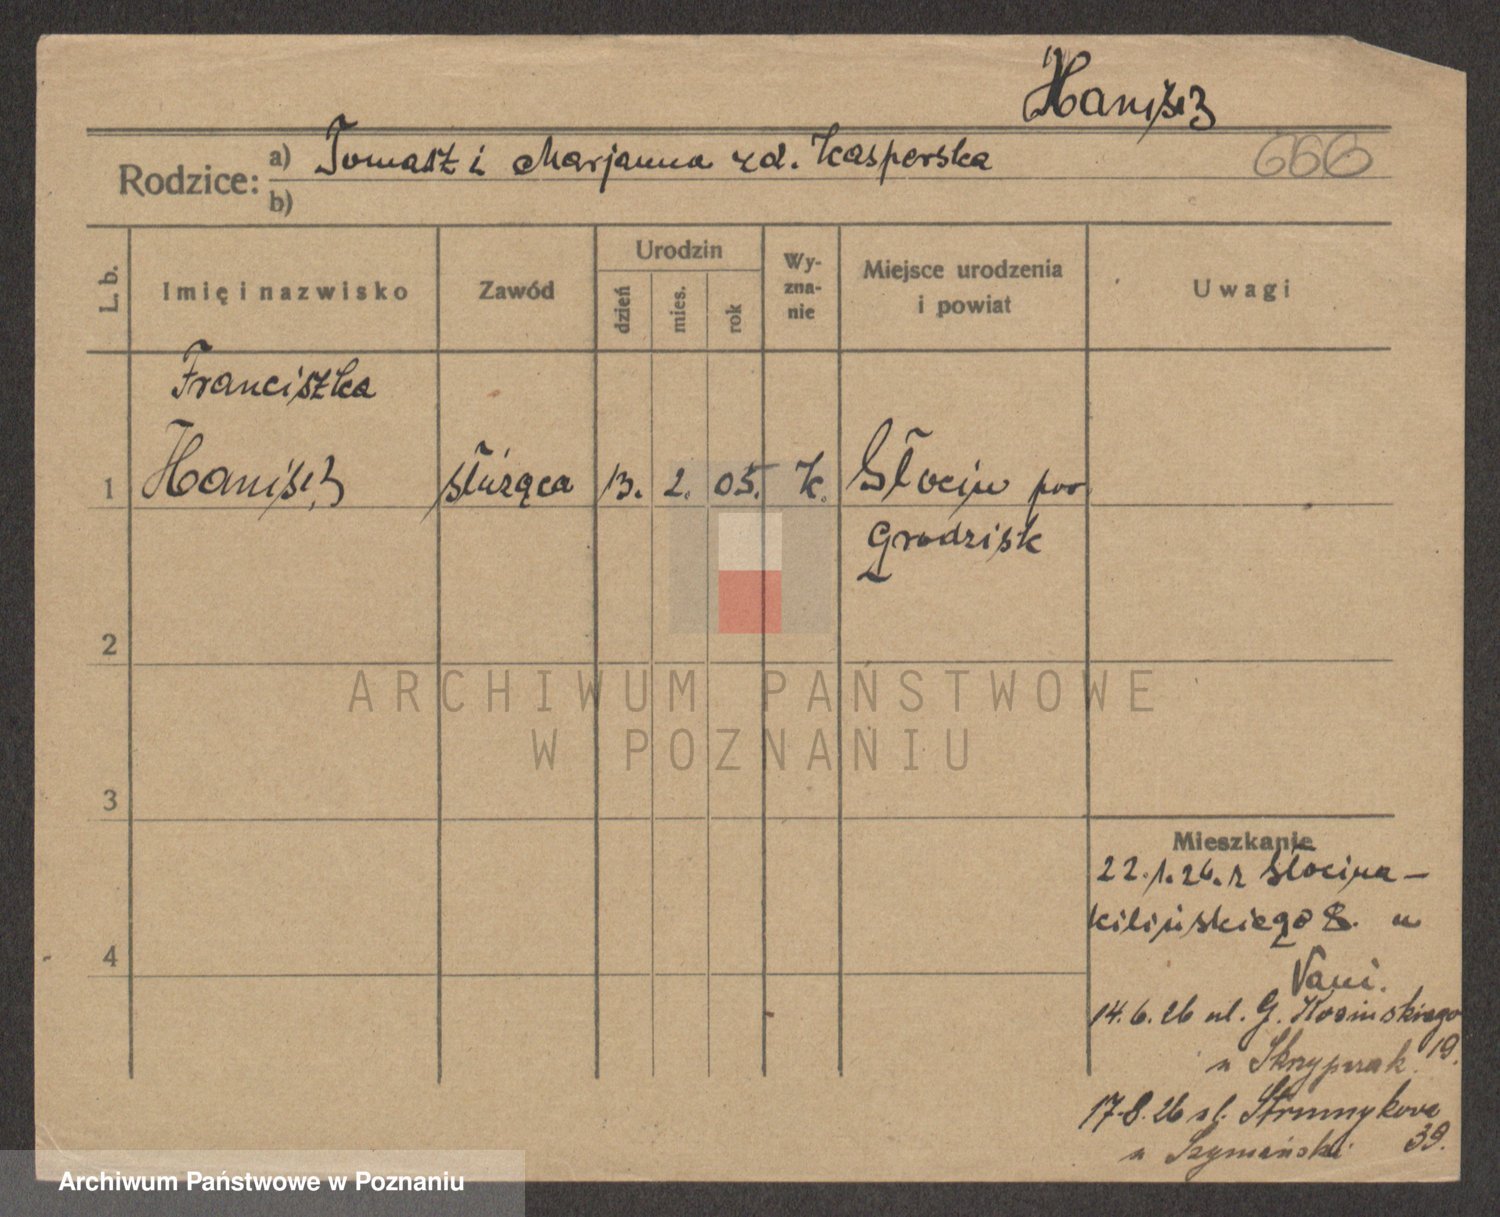 Hanisz
666
Rodzice: a) Tomasz i Marjanna zd. Kasperska
b)
L. b.
Imię i nazwisko
Zawód
Urodzin
dzień
mies.
rok
Wy-
zna-
nie
Miejsce urodzenia
i powiat
Uwagi
Franciszka
1 Hanisz służąca 13. 2. 05. K. Słocin pow
Grodzisk
2
3
4
ARCHIWUM PAŃSTWOWE
W POZNANIU
Mieszkanie
22.1.26. z Słocina -
Kilińskiego 8. u
14.6.26 ul. G. Kosinskiego
19.
u Skrzypczak
17.8.26 ul. Strumykowa
39.
u Szymański
Archiwum Państwowe w Poznaniu